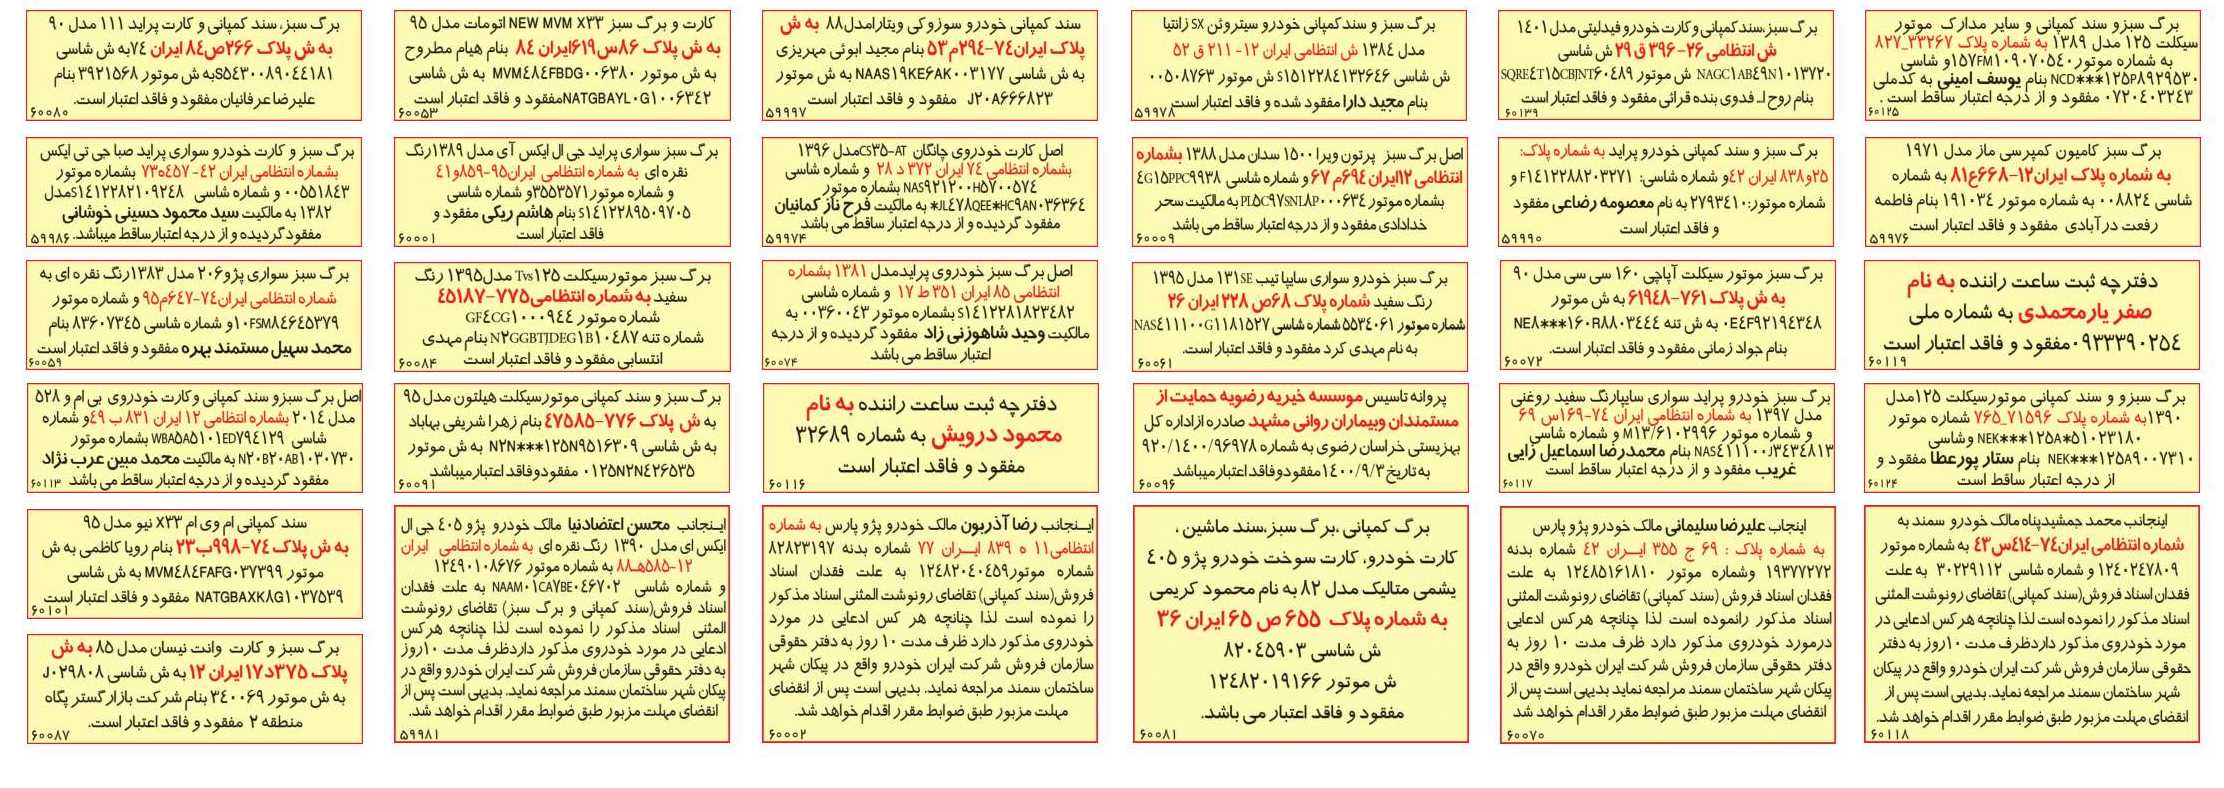 برگ سبزو سند کمپانی و سایر مدارک موتور
سیکلت ۱۲۵ مدل ۱۳۸۹ به شماره پلاک ۳۳۲۶۷_۸۲۷
به شماره موتور ۱۵۷FM۱۰۹۰۷۰۵۴۰ و شاسی
NCD***۱۲۵P۸۹۲۹۵۳۰ بنام یوسف امینی به کدملی
۰۷۲۰۴۰۳۲۴۳ مفقود و از درجه اعتبار ساقط است .
۶۰۱۲۵
برگ سبز،سند کمپانی و کارت خودرو فیدلیتی مدل ۱۴۰۱
ش انتظامی ۲۶-۳۹۶ ق ۲۹ ش شاسی
NAGC۱AB۴۹N۱۰۱۳۷۲۰ ش موتور SQRE۴T۱۵CBJNT۶۰۴۸۹
بنام روح اله فدوی بنده قرائی مفقود و فاقد اعتبار است
۶۰۱۳۹
برگ سبز و سند کمپانی خودرو سیتروئن SX زانتیا
مدل ۱۳۸۴ ش انتظامی ایران ۱۲- ۲۱۱ ق ۵۲
ش شاسی S۱۵۱۲۲۸۴۱۳۲۶۴۶ ش موتور ۰۰۵۰۸۷۶۳
بنام مجید دارا مفقود شده و فاقد اعتبار است
۵۹۹۷۸
سند کمپانی خودرو سوزوکی ویتارا مدل۸۸ به ش
پلاک ایران۷۴-۲۹۴م۵۳ بنام مجید ابوئی مهریزی
به ش شاسی NAAS۱۹KE۶AK۰۰۳۱۷۷ به ش موتور
J۲۰A۶۶۶۸۲۳ مفقود و فاقد اعتبار است
۵۹۹۹۷
کارت و برگ سبز NEW MVM X۳۳ اتومات مدل ۹۵
به ش پلاک ۸۶س۶۱۹ایران ۸۴ بنام هیام مطروح
به ش موتور MVM۴۸۴FBDG۰۰۶۳۸۰ به ش شاسی
NATGBAYL۰G۱۰۰۶۳۴۲مفقود و فاقد اعتبار است
۶۰۰۵۳
برگ سبز، سند کمپانی و کارت پراید ۱۱۱ مدل ۹۰
به ش پلاک ۲۶۶ص۸۴ ایران ۷۴به ش شاسی
S۵۴۳۰۰۸۹۰۴۴۱۸۱به ش موتور ۳۹۲۱۵۶۸ بنام
علیرضا عرفانیان مفقود و فاقد اعتبار است.
۶۰۰۸۰
برگ سبز کامیون کمپرسی ماز مدل ۱۹۷۱
به شماره پلاک ایران۱۲-۶۶۸ع۸۱ به شماره
شاسی ۰۰۸۸۲۴ به شماره موتور ۱۹۱۰۳۴ بنام فاطمه
رفعت درآبادی مفقود و فاقد اعتبار است
۵۹۹۷۶
برگ سبز و سند کمپانی خودرو پراید به شماره پلاک:
۲۵و۸۳۸ ایران ۴۲و شماره شاسی: F۱۴۱۲۲۸۸۲۰۳۲۷۱ و
شماره موتور:۲۷۹۳۴۱۰ به نام معصومه رضاعی مفقود
و فاقد اعتبار است
۵۹۹۹۰
اصل برگ سبز پرتون ویرا ۱۵۰۰ سدان مدل ۱۳۸۸ بشماره
انتظامی ۱۲ایران۶۹۴م ۶۷ و شماره شاسی ۴G۱۵PPC۹۹۳۸
بشماره موتور PL۵C۹۷SNL۸P۰۰۰۶۳۴ به مالکیت سحر
خدادادی مفقود و از درجه اعتبار ساقط می باشد
۶۰۰۰۹
اصل کارت خودروی چانگان CS۳۵-AT مدل ۱۳۹۶
بشماره انتظامی ۷۴ ایران ۳۷۲ د ۲۸ و شماره شاسی
NAS۹۲۱۲۰۰H۵۷۰۰۵۷۴ بشماره موتور
JL۴۷۸QEE*HC۹AN۰۳۶۳۶۴* به مالکیت فرح ناز کمانیان
مفقود گردیده و از درجه اعتبار ساقط می باشد
۵۹۹۷۴
برگ سبز سواری پراید جی ال ایکس آی مدل ۱۳۸۹رنگ
نقره ای به شماره انتظامی ایران۹۵-۸۵۹و۴۱
و شماره موتور ۳۵۵۳۵۷۱و شماره شاسی
S۱۴۱۲۲۸۹۵۰۹۷۰۵ بنام هاشم ریکی مفقود و
فاقد اعتبار است
۶۰۰۰۱
برگ سبز و کارت خودرو سواری پراید صبا جی تی ایکس
بشماره انتظامی ایران ۴۲- ۴۵۷ه۷۳ بشماره موتور
۰۰۵۵۱۸۴۳ و شماره شاسی S۱۴۱۲۲۸۲۱۰۹۲۴۸مدل
۱۳۸۲ به مالکیت سید محمود حسینی خوشانی
مفقود گردیده و از درجه اعتبارساقط میباشد.
۵۹۹۸۶
دفترچه ثبت ساعت راننده به نام
صفر یارمحمدی به شماره ملی
۰۹۳۳۳۹۰۲۵۴مفقود و فاقد اعتبار است
۶۰۱۱۹
برگ سبز موتور سیکلت آپاچی ۱۶۰ سی سی مدل ۹۰
به ش پلاک ۷۶۱-۶۱۹۴۸ به ش موتور
۰E۴F۹۲۱۹۴۳۴۸ به ش تنه NE۸***۱۶۰R۸۸۰۳۴۴۴
بنام جواد زمانی مفقود و فاقد اعتبار است.
۶۰۰۷۲
برگ سبز خودرو سواری سایپا تیپ ۱۳۱SE مدل ۱۳۹۵
رنگ سفید شماره پلاک ۶۸ص ۲۲۸ ایران ۲۶
شماره موتور ۵۵۳۴۰۶۱ شماره شاسی NAS۴۱۱۱۰۰G۱۱۸۱۵۲۷
به نام مهدی کرد مفقود و فاقد اعتبار است.
۶۰۰۶۱
اصل برگ سبز خودروی پرایدمدل ۱۳۸۱ بشماره
انتظامی ۸۵ ایران ۳۵۱ ط ۱۷ و شماره شاسی
S۱۴۱۲۲۸۱۸۲۳۴۸۲ بشماره موتور ۰۰۳۶۰۰۴۳ به
مالکیت وحید شاهوزنی زاد مفقود گردیده و از درجه
اعتبار ساقط می باشد
۶۰۰۷۴
برگ سبز موتورسیکلت Tvs۱۲۵ مدل۱۳۹۵ رنگ
سفید به شماره انتظامی۷۷۵-۴۵۱۸۷
شماره موتور GF۴CG۱۰۰۰۹۴۴
شماره تنه N۲GGBTJDEG۱B۱۰۴۸۷ بنام مهدی
انتسابی مفقود و فاقد اعتبار است
۶۰۰۸۴
برگ سبز سواری پژو۲۰۶ مدل ۱۳۸۳رنگ نقره ای به
شماره انتظامی ایران۷۴-۶۴۷م۹۵ و شماره موتور
۱۰FSM۸۴۶۴۵۳۷۹و شماره شاسی ۸۳۶۰۷۳۴۵ بنام
محمد سهیل مستمند بهره مفقود و فاقد اعتبار است
۶۰۰۵۹
برگ سبزو و سند کمپانی موتورسیکلت ۱۲۵مدل
۱۳۹۰به شماره پلاک ۷۱۵۹۶_۷۶۵ شماره موتور
NEK***۱۲۵A*۵۱۰۲۳۱۸۰ وشاسی
NEK***۱۲۵A۹۰۰۷۳۱۰ بنام ستار پورعطا مفقود و
از درجه اعتبار ساقط است
۶۰۱۲۴
برگ سبز خودرو پراید سواری سایپارنگ سفید روغنی
مدل ۱۳۹۷ به شماره انتظامی ایران ۷۴-۱۶۹س ۶۹
و شماره موتور M۱۳/۶۱۰۲۹۹۶ و شماره شاسی
NAS۴۱۱۱۰۰J۳۴۳۴۸۱۳ بنام محمدرضا اسماعیل زایی
غریب مفقود و از درجه اعتبار ساقط است
۶۰۱۱۷
پروانه تاسیس موسسه خیریه رضویه حمایت از
مستمندان وبیماران روانی مشهد صادره ازاداره کل
بهزیستی خراسان رضوی به شماره ۹۲۰/۱۴۰۰/۹۶۹۷۸
به تاریخ ۱۴۰۰/۹/۳مفقودوفاقداعتبارمیباشد
۶۰۰۹۶
دفترچه ثبت ساعت راننده به نام
محمود درویش به شماره ۳۲۶۸۹
مفقود و فاقد اعتبار است
۶۰۱۱۶
برگ سبز و سند کمپانی موتورسیکلت هیلتون مدل ۹۵
به ش پلاک ۷۷۶-۴۷۵۸۵ بنام زهرا شریفی بهاباد
به ش شاسی N۲N***۱۲۵N۹۵۱۶۳۰۹ به ش موتور
۰۱۲۵N۲N۴۲۶۵۳۵ مفقودوفاقد اعتبارمیباشد
۶۰۰۹۱
اصل برگ سبزو سند کمپانی وکارت خودروی بی ام و ۵۲۸
مدل ۲۰۱۴ بشماره انتظامی ۱۲ ایران ۸۳۱ ب ۴۹و شماره
شاسی WBA۵A۵۱۰۱ED۷۹۴۱۲۹ بشماره موتور
N۲۰B۲۰AB۱۰۳۰۷۳۰ به مالکیت محمد مبین عرب نژاد
مفقود گردیده و از درجه اعتبار ساقط می باشد
۶۰۱۱۳
اینجانب محمد جمشیدپناه مالک خودرو سمند به
شماره انتظامی ایران۷۴-۴۱۴س۴۳ به شماره موتور
۱۲۴۰۲۴۷۸۰۹ و شماره شاسی ۳۰۲۲۹۱۱۲ به علت
فقدان اسناد فروش(سند کمپانی) تقاضای رونوشت المثنی
اسناد مذکور را نموده است لذا چنانچه هرکس ادعایی در
مورد خودروی مذکور داردظرف مدت ۱۰روز به دفتر
حقوقی سازمان فروش شرکت ایران خودرو واقع در پیکان
شهر ساختمان سمند مراجعه نماید. بدیهی است پس از
انقضای مهلت مزبور طبق ضوابط مقرر اقدام خواهد شد.
۶۰۱۱۸
اینجاب علیرضا سلیمانی مالک خودرو پژو پارس
به شماره پلاک : ۶۹ ج ۳۵۵ ایــران ۴۲ شماره بدنه
۱۹۳۷۷۲۷۲ وشماره موتور ۱۲۴۸۵۱۶۱۸۱۰ به علت
فقدان اسناد فروش (سند کمپانی) تقاضای رونوشت المثنی
اسناد مذکور رانموده است لذا چنانچه هرکس ادعایی
درمورد خودروی مذکور دارد ظرف مدت ۱۰ روز به
دفتر حقوقی سازمان فروش شرکت ایران خودرو واقع در
پیکان شهر ساختمان سمند مراجعه نماید. بدیهی است پس از
انقضای مهلت مزبور طبق ضوابط مقرر اقدام خواهد شد
۶۰۰۷۰
برگ کمپانی ،برگ سبز،سند ماشین ،
کارت خودرو، کارت سوخت خودرو پژو ۴۰۵
یشمی متالیک مدل ۸۲ به نام محمود کریمی
به شماره پلاک ۶۵۵ ص ۶۵ ایران ۳۶
ش شاسی ۸۲۰۴۵۹۰۳
ش موتور ۱۲۴۸۲۰۱۹۱۶۶
مفقود و فاقد اعتبار می باشد.
۶۰۰۸۱
اینــجانب رضا آذربون مالک خودرو پژو پارس به شماره
انتظامی۱۱ ه ۸۳۹ ایـــران ۷۷ شماره بدنه ۸۲۸۲۳۱۹۷
شماره موتور۱۲۴۸۲۰۴۰۴۵۹ به علت فقدان اسناد
فروش(سند کمپانی) تقاضای رونوشت المثنی اسناد مذکور
را نموده است لذا چنانچه هر کس ادعایی در مورد
خودروی مذکور دارد ظرف مدت ۱۰ روز به دفتر حقوقی
سازمان فروش شرکت ایران خودرو واقع در پیکان شهر
ساختمان سمند مراجعه نماید. بدیهی است پس از انقضای
مهلت مزبور طبق ضوابط مقرر اقدام خواهد شد.
۶۰۰۰۲
اینجانب محسن اعتضادنیا مالک خودرو پژو ۴۰۵ جی ال
ایکس ای مدل ۱۳۹۰ رنگ نقره ای به شماره انتظامی ایران
۱۲-۵۸۵هـ۸۸ به شماره موتور ۱۲۴۹۰۱۰۸۶۷۶
و شماره شاسی NAAM۰۱CA۷BE۰۴۶۷۰۲ به علت فقدان
اسناد فروش(سند کمپانی و برگ سبز) تقاضای رونوشت
المثنی اسناد مذکور را نموده است لذا چنانچه هرکس
ادعایی در مورد خودروی مذکور داردظرف مدت ۱۰روز
به دفتر حقوقی سازمان فروش شرکت ایران خودرو واقع در
پیکان شهر ساختمان سمند مراجعه نماید. بدیهی است پس از
انقضای مهلت مزبور طبق ضوابط مقرر اقدام خواهد شد.
۵۹۹۸۱
سند کمپانی ام وی ام X۳۳ نیو مدل ۹۵
به ش پلاک ۷۴-۹۹۸ب۲۳ بنام رویا کاظمی به ش
موتور MVM۴۸۴FAFG۰۳۷۳۹۹ به ش شاسی
NATGBAXK۸G۱۰۳۷۵۳۹ مفقود و فاقد اعتبار است
۶۰۱۰۱
برگ سبز و کارت وانت نیسان مدل ۸۵ به ش
پلاک ۳۷۵د۱۷ ایران ۱۲ به ش شاسی J۰۲۹۸۰۸
به ش موتور ۳۴۰۰۶۹ بنام شرکت بازارگستر پگاه
منطقه ۲ مفقود و فاقد اعتبار است.
۶۰۰۸۷